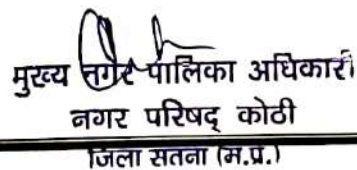 मुख्य नगर पालिका अधिकारी
नगर परिषद् कोठी
जिला सतना (म.प्र.)